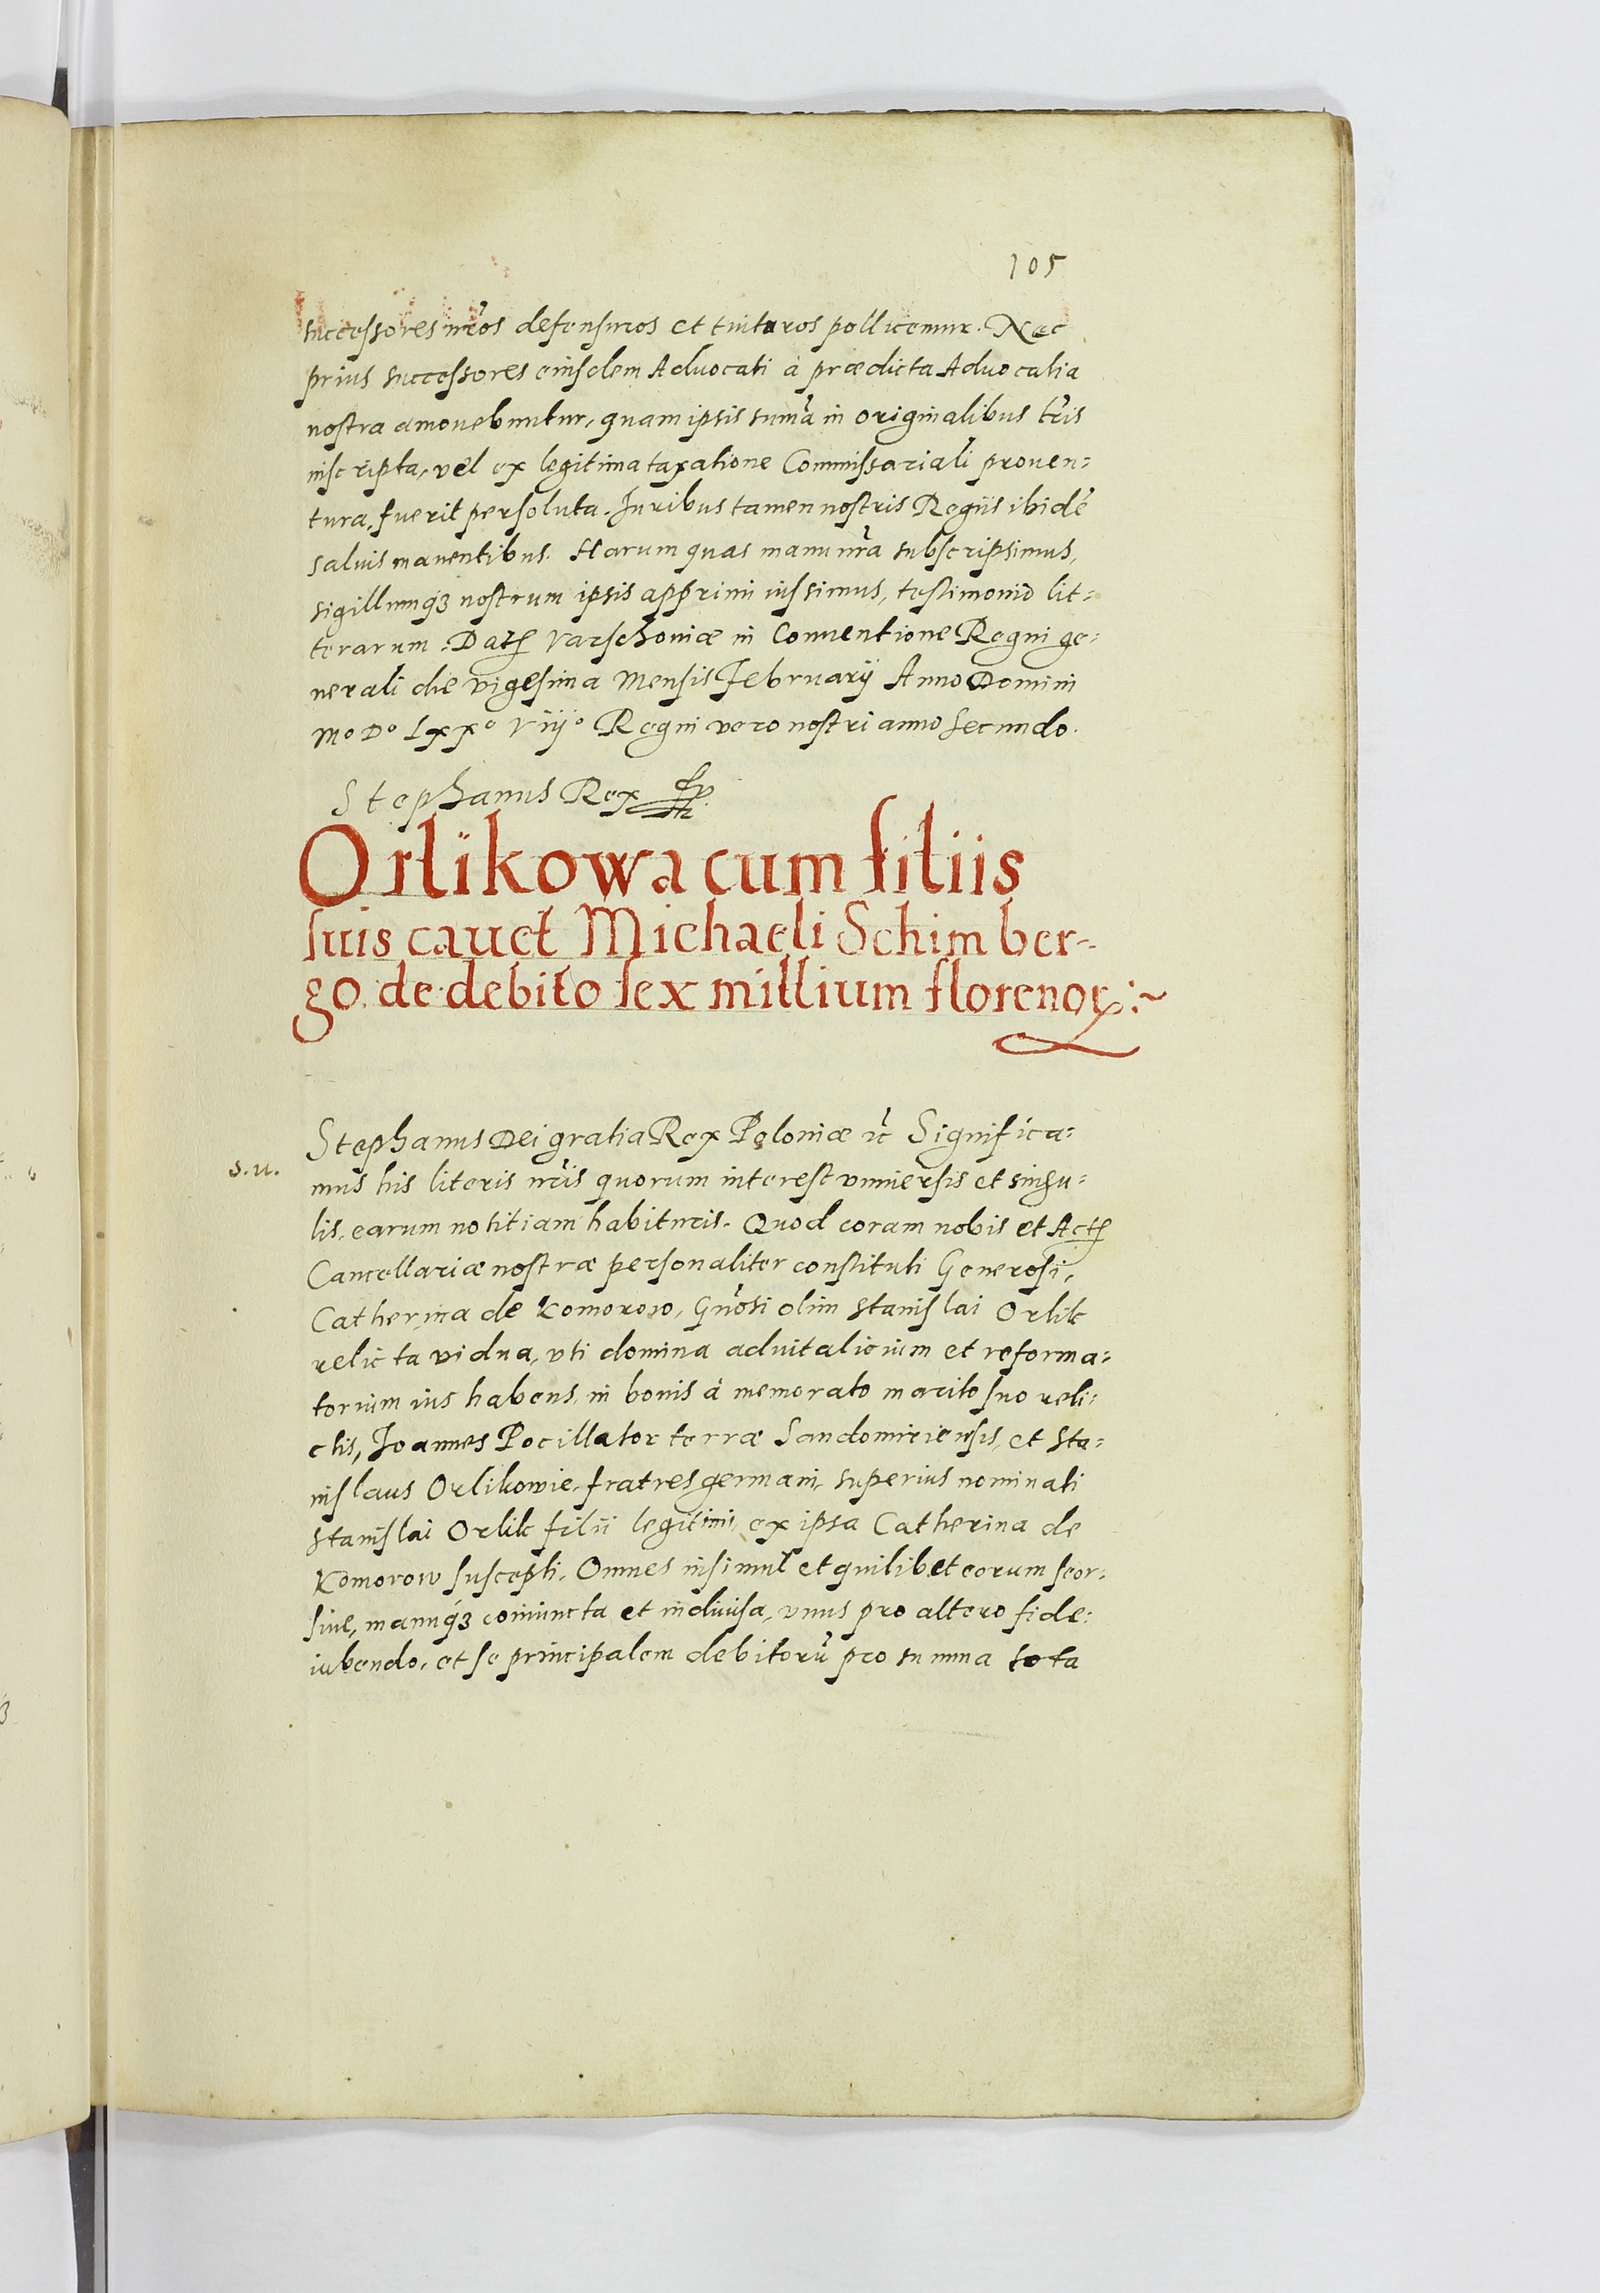 105
successores nr̃os defensuros et tuituros pollicemur. Nec
prius successores eiusdem Advocati à prædicta Advocatia
nostra amovebuntur, quam ipsis sum̃a in originalibus lr̃is
inscripta, vel ex legitima taxatione Commissariali proven=
tura, fuerit persoluta. Juribus tamen nostris Regiis ibidẽ
salvis manentibus. Harum quas manu nr̃a subscripsimus,
sigillumq́ꝫ nostrum ipsis apprimi iussimus, testimonio lit=
terarum. Datꝭ Varschoviæ in Conventione Regni ge=
nerali die vigesima Mensis Februarij Anno Domini
Mº Dº Lxxº Viijº Regni vero nostri anno secundo.
Stephanus Rex
Orlikowa cum filiis
suis cavet Michaeli Schimber-
go. de debito sex millium florenoꝝ:~
Stephanus Dei gratia Rex Poloniæ ⁊c̃ Significa=
s.u.
mus his literis nr̃is quorum interest universis et singu=
lis, earum notitiam habituris. Quod coram nobis et Actꝭ
Cancellariæ nostræ personaliter constituti Generosi,
Catherina de Komorow, Gñosi olim Stanislai Orlik
relicta vidua, uti domina advitalicium et reforma=
torium ius habens, in bonis à memorato marito suo reli=
ctis, Joannes Pocillator terræ Sandomiriensis, et Sta=
nislaus Orlikowie, fratres germani, superius nominati
Stanislai Orlik filii legitimi, ex ipsa Catherina de
Komorow suscepti, Omnes insimul et quilibet eorum seor=
sive, manuq́ꝫ coniuncta et indivisa, unus pro altero fide=
iubendo, et se principalem debitorũ pro summa tota